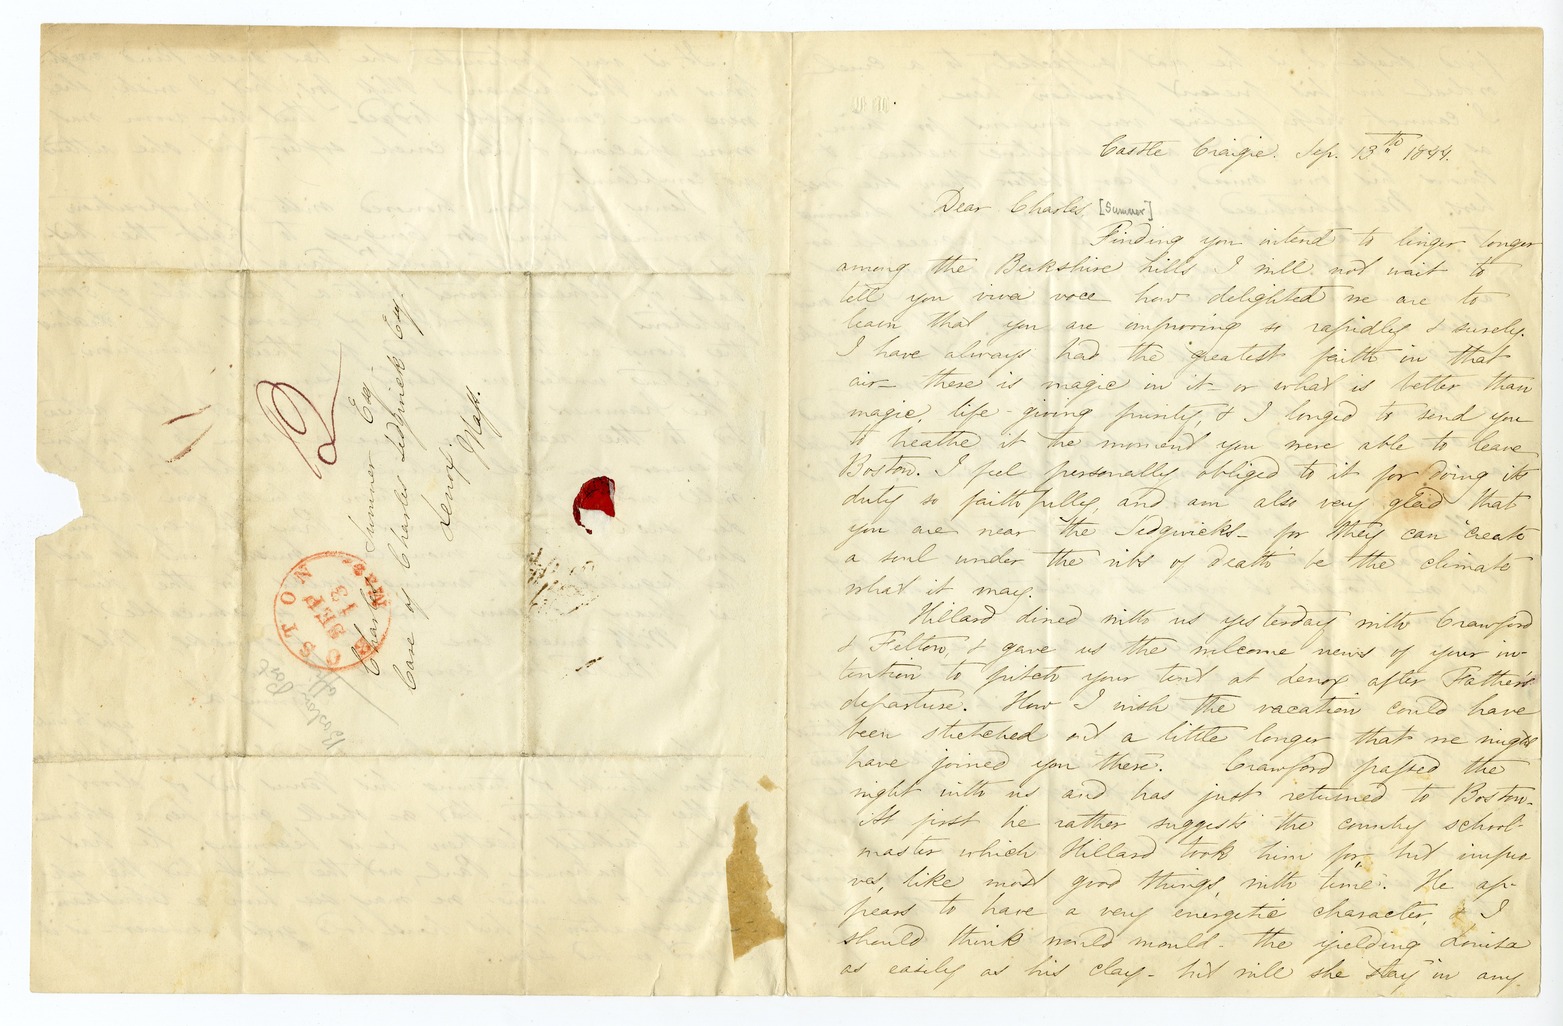 2
Charles Sumner Esq -
Care of Charles Sedgwick Esq.
Lenox.
Mass.
BOSTON
SEP
13
Castle Craigie. Sep. 13th 1844.
Dear Charles, [Sumner]
Finding you intend to linger longer
among the Berkshire hills I will not wait to
tell you viva voce how delighted we are to
learn that you are improving so rapidly & surely.
I have always had the greatest faith in that
air - there is magic in it - or what is better than
magic, life-giving purity, & I longed to send you
to breathe it the moment you were able to leave
Boston. I feel personally obliged to it for doing its
duty so faithfully, and am also very glad that
you are near the Sedgwicks - for they can "create
a soul under the ribs of Death" be the climate
what it may.
Hillard dined with us yesterday with Crawford
& Felton, & gave us the welcome news of your in-
tention to pitch your tent at Lenox after Father's
departure. How I wish the vacation could have
been stretched out a little longer that we might
have joined you there. Crawford passed the
night with us and has just returned to Boston.
At first he rather suggests the country school-
master which Hillard took him for, but impro
ves, like most good things, with time. He ap-
pears to have a very energetic character, & I
should think would mould - the yielding Louisa
as easily as his clay - but will she stay in any